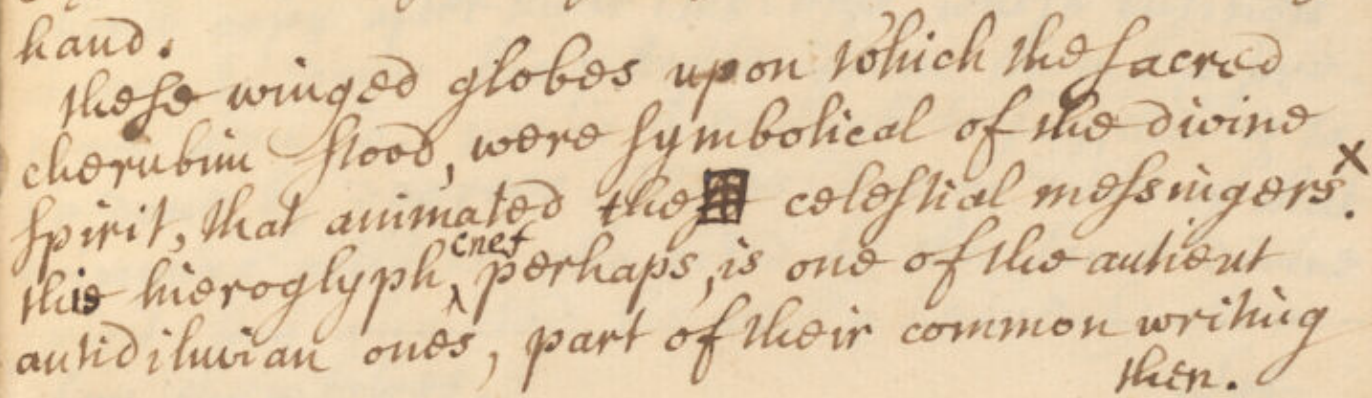 hand.
these winged globes upon which the sacred
cherubim stood, were symbolical of the divine
spirit, that animated the celestial messingers. x
this hieroglyph, cnef perhaps, is one of the antient
antidiluvian ones, part of their common writing
then.